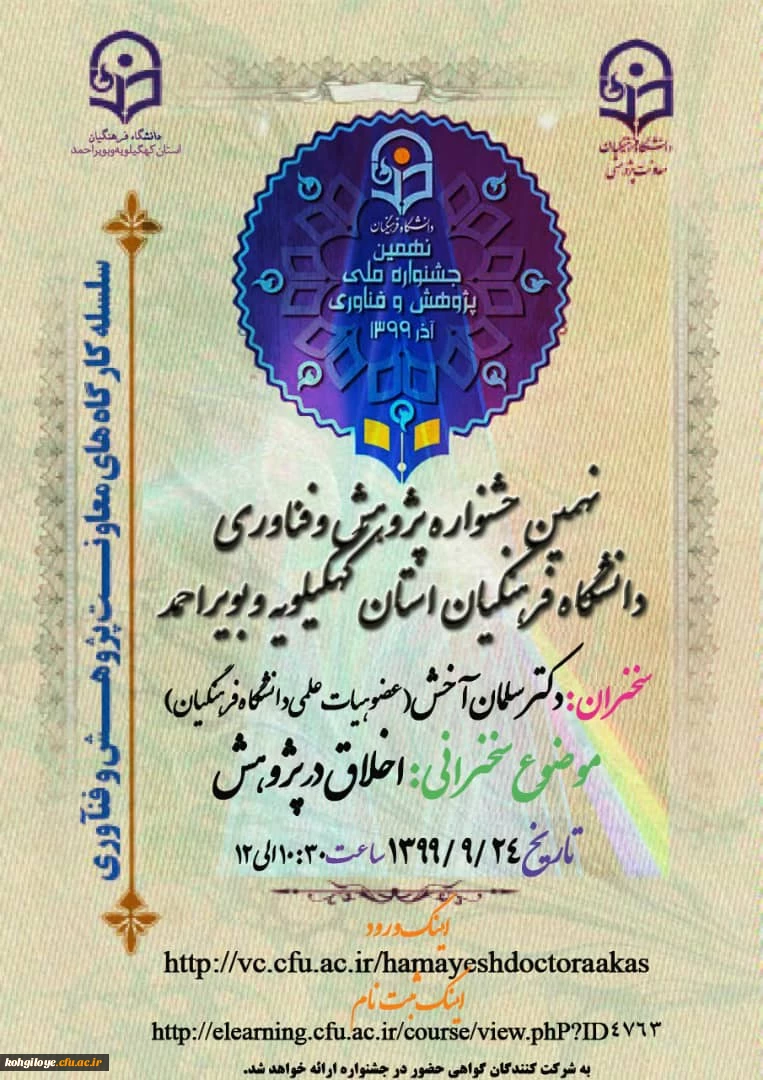 دانشگاه فرهنگیان
معاونت پژوهشی
دانشگاه فرهنگیان
استان کهگیلویه و بویراحمد
دانشگاه فرهنگیان
نهمین
جشنواره ملی
پژوهش و فناوری
آذر ۱۳۹۹
سلسله کارگاه های معاونت پژوهش و فنآوری
نهمین جشنواره پژوهش و فناوری
دانشگاه فرهنگیان استان کهگیلویه و بویراحمد
سخنران: دکتر سلمان آخش (عضو هیات علمی دانشگاه فرهنگیان)
موضوع سخنرانی: اخلاق در پژوهش
تاریخ ۱۳۹۹/۹/۲۴ ساعت ۱۰:۳۰ الی ۱۲
لینک ورود
http://vc.cfu.ac.ir/hamayeshdoctoraakas
لینک ثبت نام
http://elearning.cfu.ac.ir/course/view.phP?ID٤٧٦٣
به شرکت کنندگان گواهی حضور در جشنواره ارائه خواهد شد.
kohgiloye.cfu.ac.ir